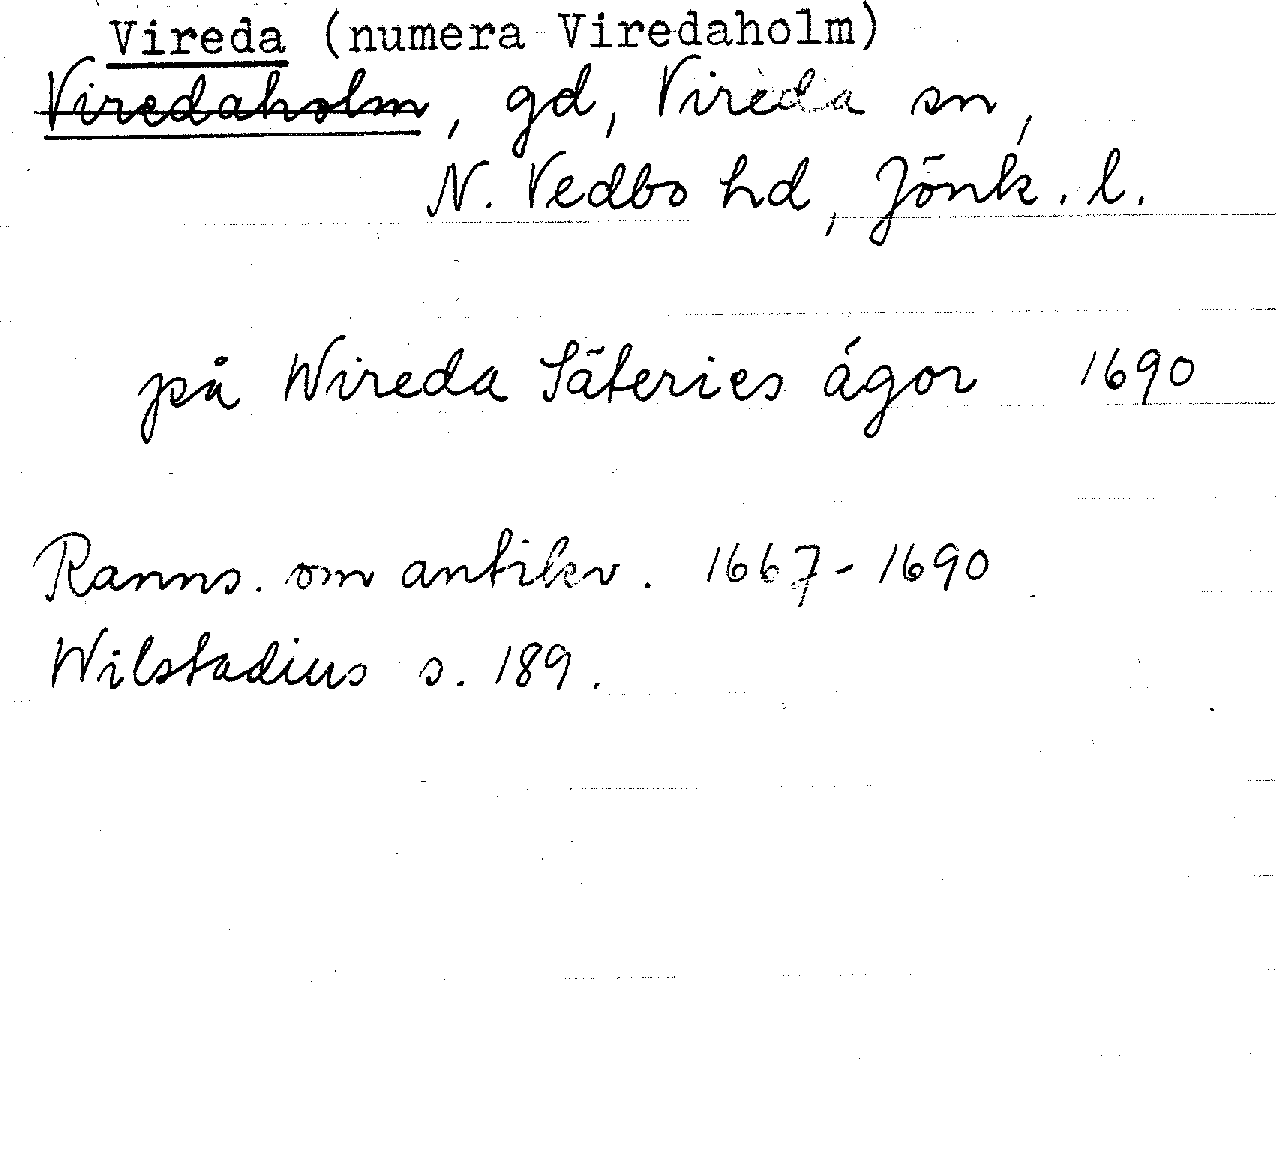 Vireda (numera Viredaholm)
Viredaholm, gd, Vireda sn,
N. Vedbo hd, Jönk. l.
på Wireda Säteries ágor 1690
Ranns. om antikv. 1667-1690
Wilstadius s. 189.